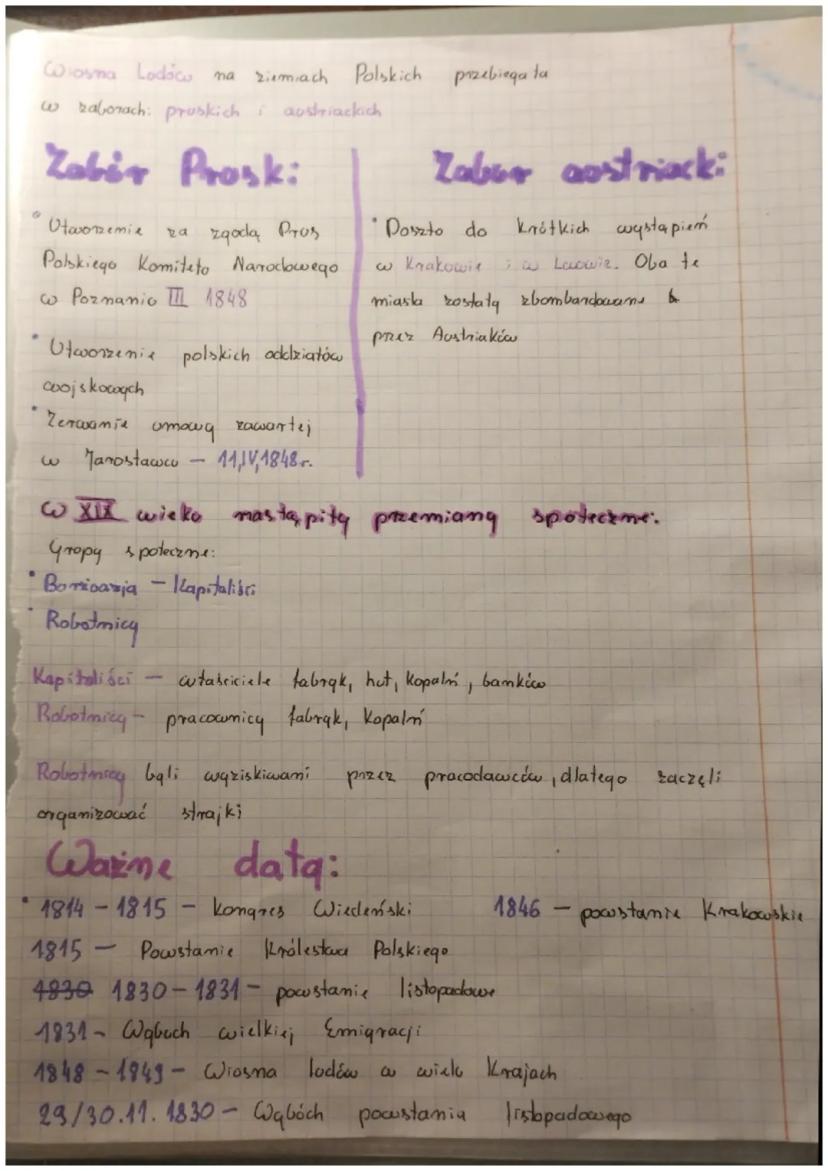 Wiosna Ludów na ziemiach Polskich przebiegała
w zaborach: pruskich i austriackich
Zabór Pruski
• Utworzenie za zgodą Prus
Polskiego Komitetu Narodowego
w Poznaniu III 1848
• Utworzenie polskich oddziałów
wojskowych
• Zerwanie umowy zawartej
w Jarosławcu – 11,IV,1848r.
Zabór austriacki
• Doszło do krótkich wystąpień
w Krakowie i w Lwowie. Oba te
miasta zostały zbombardowane
przez Austriaków
W XIX wieku nastąpiły przemiany społeczne:
Grupy społeczne:
• Burżuazja – Kapitaliści
• Robotnicy
Kapitaliści – właściciele fabryk, hut, kopalń, banków
Robotnicy – pracownicy fabryk, kopalń
Robotnicy byli wyziskiwani przez pracodawców, dlatego zaczęli
organizować strajki
Ważne daty:
• 1814 – 1815 – kongres Wiedeński
1846 – powstanie Krakowskie
1815 – Powstanie Królestwa Polskiego
1830 1830 – 1831 – powstanie listopadowe
1831 – Wybuch wielkiej Emigracji
1848 – 1849 – Wiosna ludów w wielu Krajach
29/30.11.1830 – Wybuch powstania listopadowego